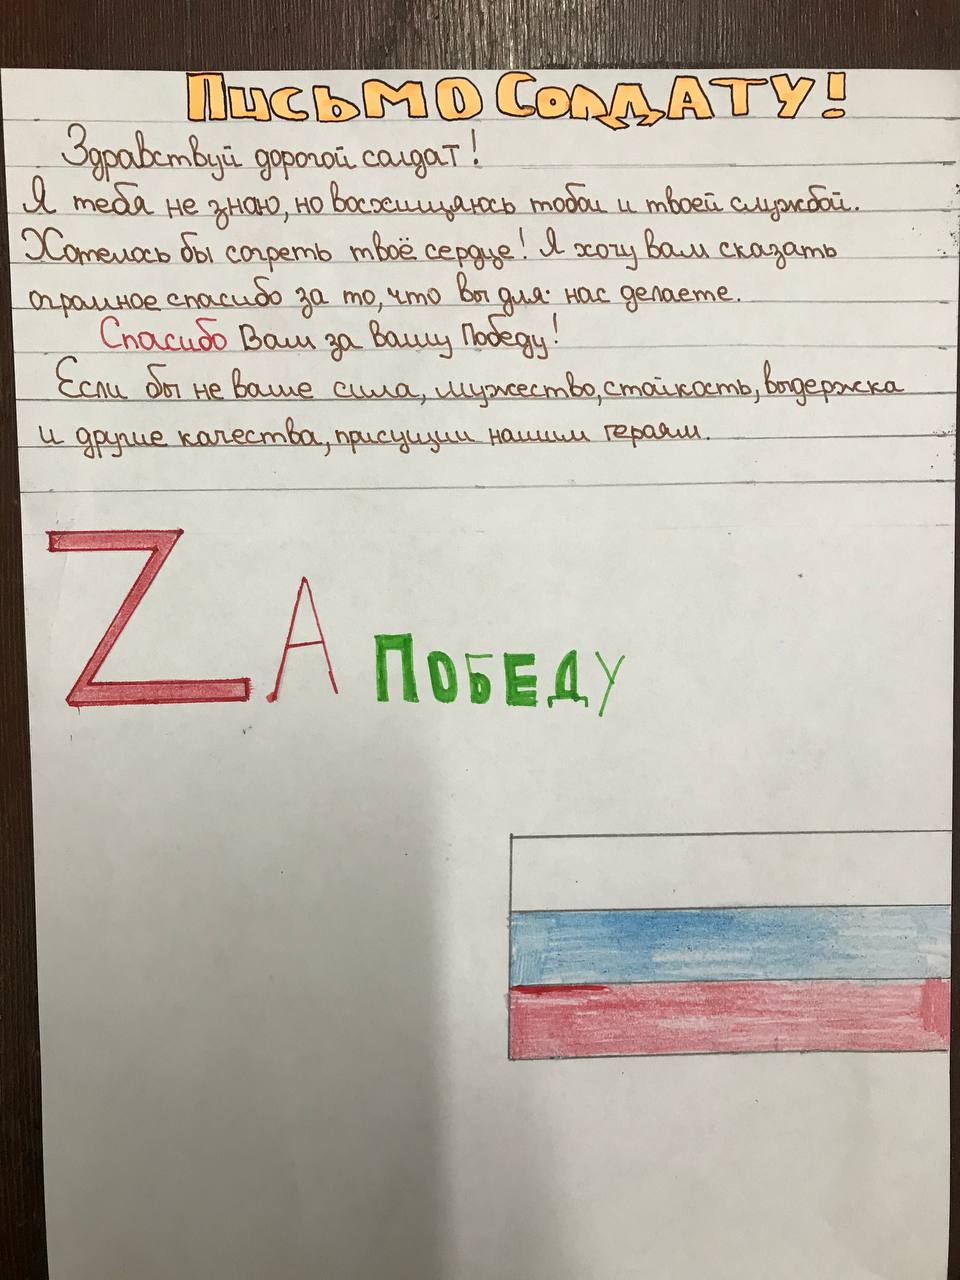 Письмо Солдату!
Здравствуй дорогой салдат!
Я тебя не знаю, но восхищаюсь тобой и твоей службой.
Хотелось бы согреть твоё сердце! Я хочу вам сказать
огромное спасибо за то, что вы для нас делаете.
Спасибо Вам за вашу Победу!
Если бы не ваше сила, мужество, стойкость, выдержка
и другие качества, присущии нашим героям.
ZА ПОБЕДУ